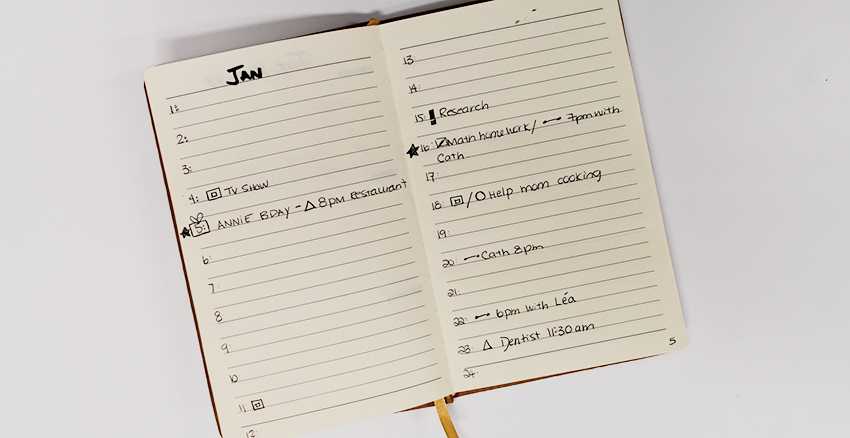 JAN
1:
2:
3:
4: TV SHOW
5: ANNIE BDAY - △ 8pm Restaurant
6:
7:
8
9:
10
11
12:
13:
14:
15: ! Research
16: Math homework/ 7pm with
Cath
17:
18: / O Help mom cooking
19:
20: Cath 8pm
21:
22: 6pm with Léa
23: △ Dentist 11:30 am
24:
5